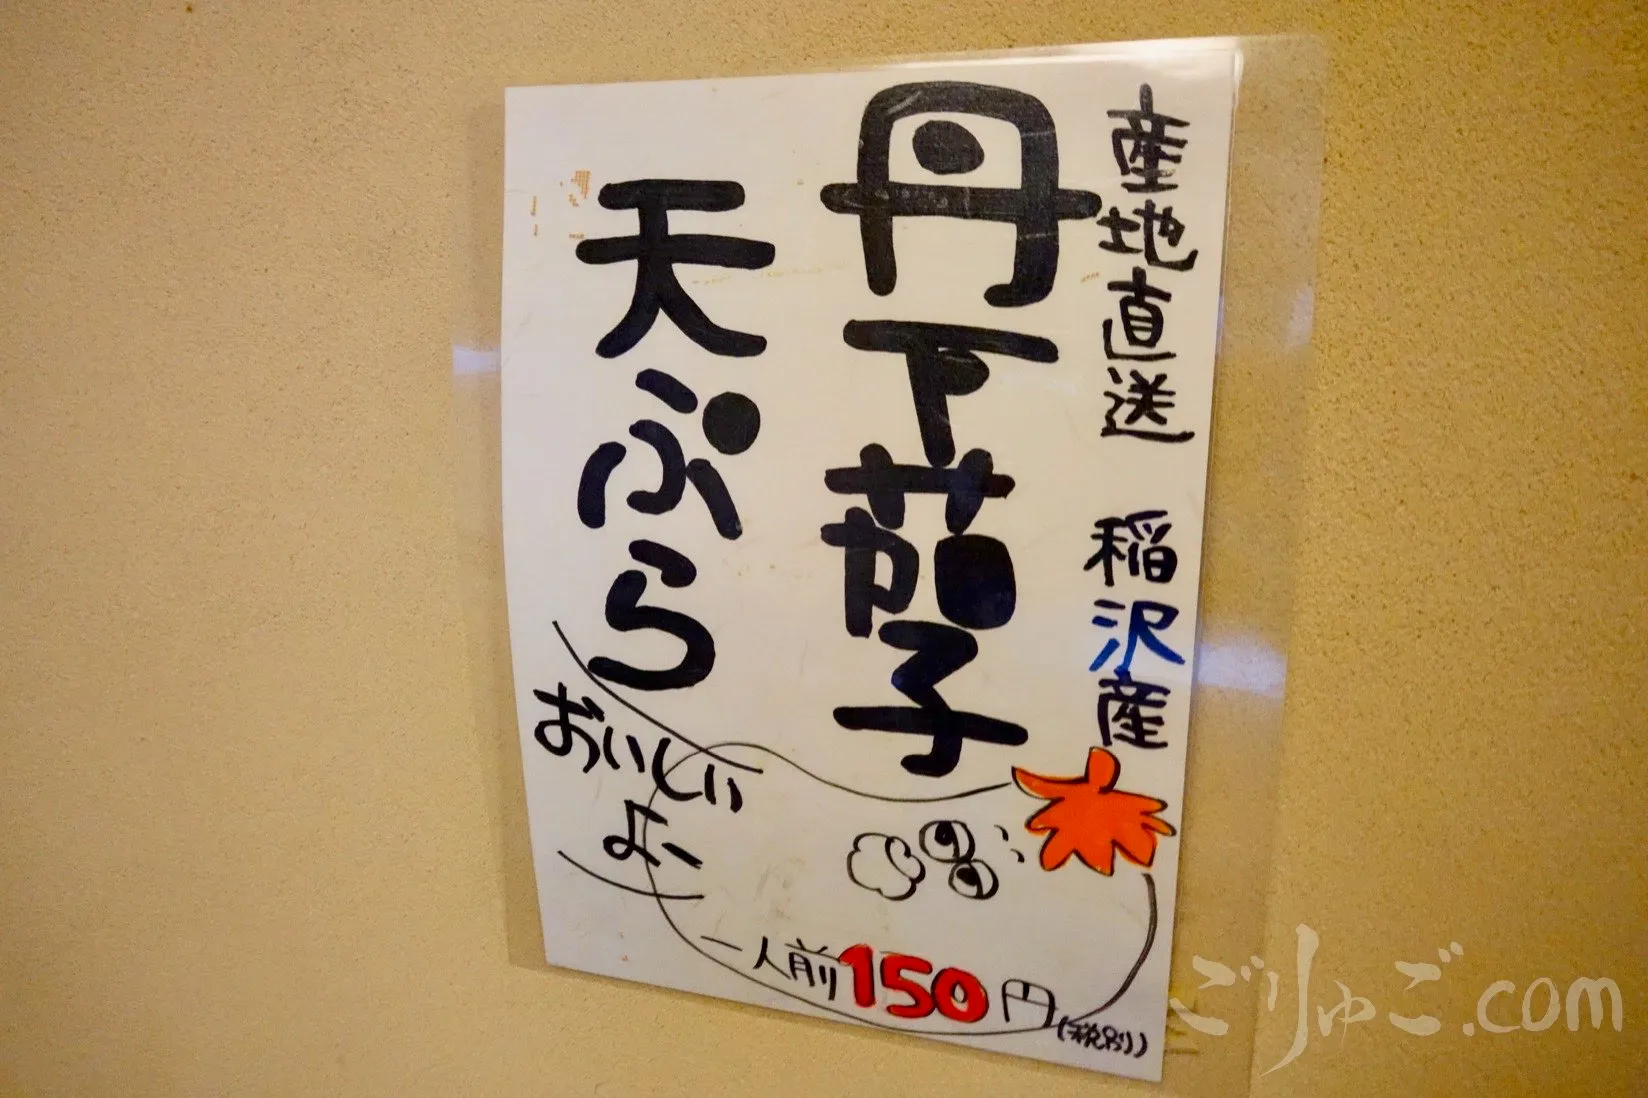 産地直送 稲沢産
丹下茄子
天ぷら
おいしい
よー
一人前150円
(税別)
ごりゅご.com